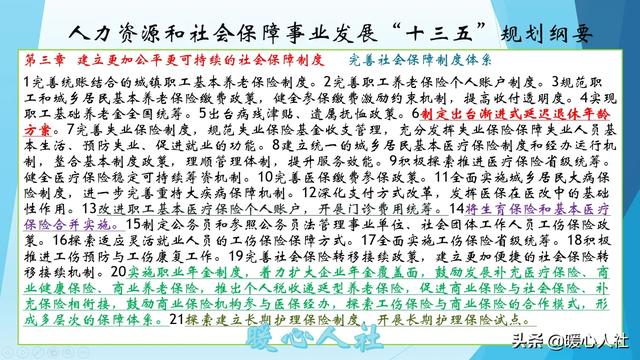 人力资源和社会保障事业发展“十三五”规划纲要
第三章 建立更加公平更可持续的社会保障制度 完善社会保障制度体系
1完善统账结合的城镇职工基本养老保险制度。2完善职工养老保险个人账户制度。3规范职
工和城乡居民基本养老保险缴费政策，健全参保缴费激励约束机制，提高收付透明度。4实现
职工基础养老金全国统筹。5出台病残津贴、遗属抚恤政策。6制定出台渐进式延迟退休年龄
方案。7完善失业保险制度，规范失业保险基金收支管理，充分发挥失业保险保障失业人员基
本生活、预防失业、促进就业的功能。8建立统一的城乡居民基本医疗保险制度和经办运行机
制，整合基本制度政策，理顺管理体制，提升服务效能。9积极探索推进医疗保险省级统筹。
健全医疗保险稳定可持续筹资机制。10完善医保缴费参保政策。11全面实施城乡居民大病保
险制度，进一步完善重特大疾病保障机制。12深化支付方式改革，发挥医保在医改中的基础
性作用。13改进职工基本医疗保险个人账户，开展门诊费用统筹。14将生育保险和基本医疗
保险合并实施。15制定公务员和参照公务员法管理事业单位、社会团体工作人员工伤保险政
策。16探索适应灵活就业人员的工伤保险保障方式。17全面实施工伤保险省级统筹。18积极
推进工伤预防与工伤康复工作。19完善社会保险转移接续政策，建立更加便捷的社会保险转
移接续机制。20实施职业年金制度，着力扩大企业年金覆盖面，鼓励发展补充医疗保险、商
业健康保险、商业养老保险，推出个人税收递延型养老保险，促进商业保险与社会保险、补
充保险相衔接，鼓励商业保险机构参与医保经办，探索工伤保险与商业保险的合作模式，形
成多层次的保障体系。21探索建立长期护理保险制度，开展长期护理保险试点。
暖心人社
头条 @暖心人社